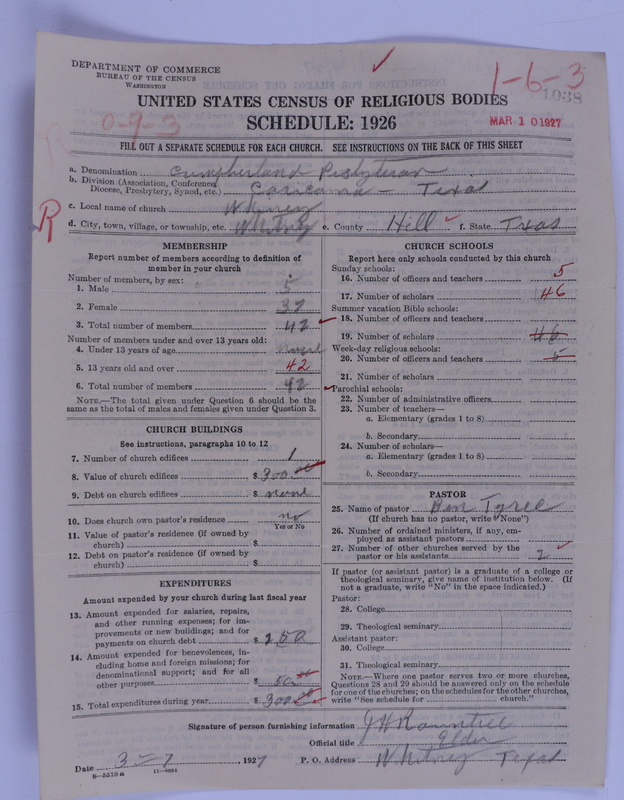 DEPARTMENT OF COMMERCE
BUREAU OF THE CENSUS
WASHINGTON
1-6-3
1038
UNITED STATES CENSUS OF RELIGIOUS BODIES
SCHEDULE: 1926
0-7-3
MAR 10 1927
FILL OUT A SEPARATE SCHEDULE FOR EACH CHURCH. SEE INSTRUCTIONS ON THE BACK OF THIS SHEET
a. Denomination Cumpherland Presbyterian
b. Division (Association, Conference, Diocese, Presbytery, Synod, etc.) Corsicana - Texas
c. Local name of church Whitney
R
d. City, town, village, or township, etc. Whitney e. County Hill f. State Texas
MEMBERSHIP
Report number of members according to definition of
member in your church
Number of members, by sex:
1. Male 5
2. Female 37
3. Total number of members 42
Number of members under and over 13 years old:
4. Under 13 years of age
5. 13 years old and over 42
6. Total number of members 42
NOTE.—The total given under Question 6 should be the
same as the total of males and females given under Question 3.
CHURCH BUILDINGS
See instructions, paragraphs 10 to 12
7. Number of church edifices 1
8. Value of church edifices $ 300.00
9. Debt on church edifices $ none
10. Does church own pastor's residence no
Yes or No
11. Value of pastor's residence (if owned by
church) $
12. Debt on pastor's residence (if owned by
church) $
EXPENDITURES
Amount expended by your church during last fiscal year
13. Amount expended for salaries, repairs,
and other running expenses; for im-
provements or new buildings; and for
payments on church debt $ 250
14. Amount expended for benevolences, in-
cluding home and foreign missions; for
denominational support; and for all
other purposes $ 50.00
15. Total expenditures during year $ 300.00
CHURCH SCHOOLS
Report here only schools conducted by this church
Sunday schools:
16. Number of officers and teachers 5
17. Number of scholars 46
Summer vacation Bible schools:
18. Number of officers and teachers
19. Number of scholars 46
Week-day religious schools:
20. Number of officers and teachers 5
21. Number of scholars
Parochial schools:
22. Number of administrative officers
23. Number of teachers—
a. Elementary (grades 1 to 8)
b. Secondary
24. Number of scholars—
a. Elementary (grades 1 to 8)
b. Secondary
PASTOR
25. Name of pastor Ben Tyree
(If church has no pastor, write "None")
26. Number of ordained ministers, if any, em-
ployed as assistant pastors
27. Number of other churches served by the
pastor or his assistants 2
If pastor (or assistant pastor) is a graduate of a college or
theological seminary, give name of institution below. (If
not a graduate, write "No" in the space indicated.)
Pastor:
28. College
29. Theological seminary
Assistant pastor:
30. College
31. Theological seminary
NOTE.—Where one pastor serves two or more churches,
Questions 28 and 29 should be answered only on the schedule
for one of the churches; on the schedules for the other churches,
write "See schedule for church."
Signature of person furnishing information J W Rountree
Official title Elder
Date 3-7, 1927 P. O. Address Whitney Texas
8-5518a 11-9034